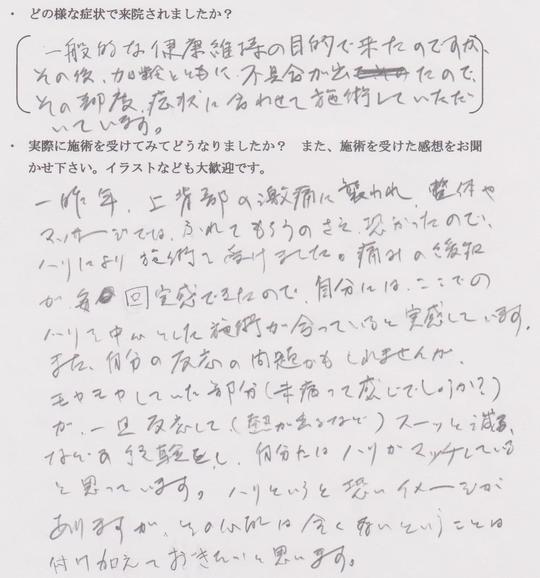 ・ どの様な症状で来院されましたか？
一般的な健康維持の目的で来たのですが、
その後、加齢とともに、不具合が出たので、
その都度、症状に合わせて施術していただ
いています。
・ 実際に施術を受けてみてどうなりましたか？ また、施術を受けた感想をお聞
かせ下さい。イラストなども大歓迎です。
一昨年、上背部の激痛に襲われ、整体や
マッサージでは、ふれてもらうのさえ、恐かったので、
ハリにより施術を受けました。痛みの緩和
が毎回実感できたので、自分には、ここでの
ハリを中心とした施術が合っていると実感しています。
また、自分の反応の問題かもしれませんが、
モヤモヤしていた部分（未病って感じでしょうか？）
が、一旦反応して（熱が出るなど）スーッと減る、
などの経験をし、自分にはハリがマッチしている
と思っています。ハリというと恐いイメージが
ありますが、その心配は全く無いということは
付け加えておきたいと思います。